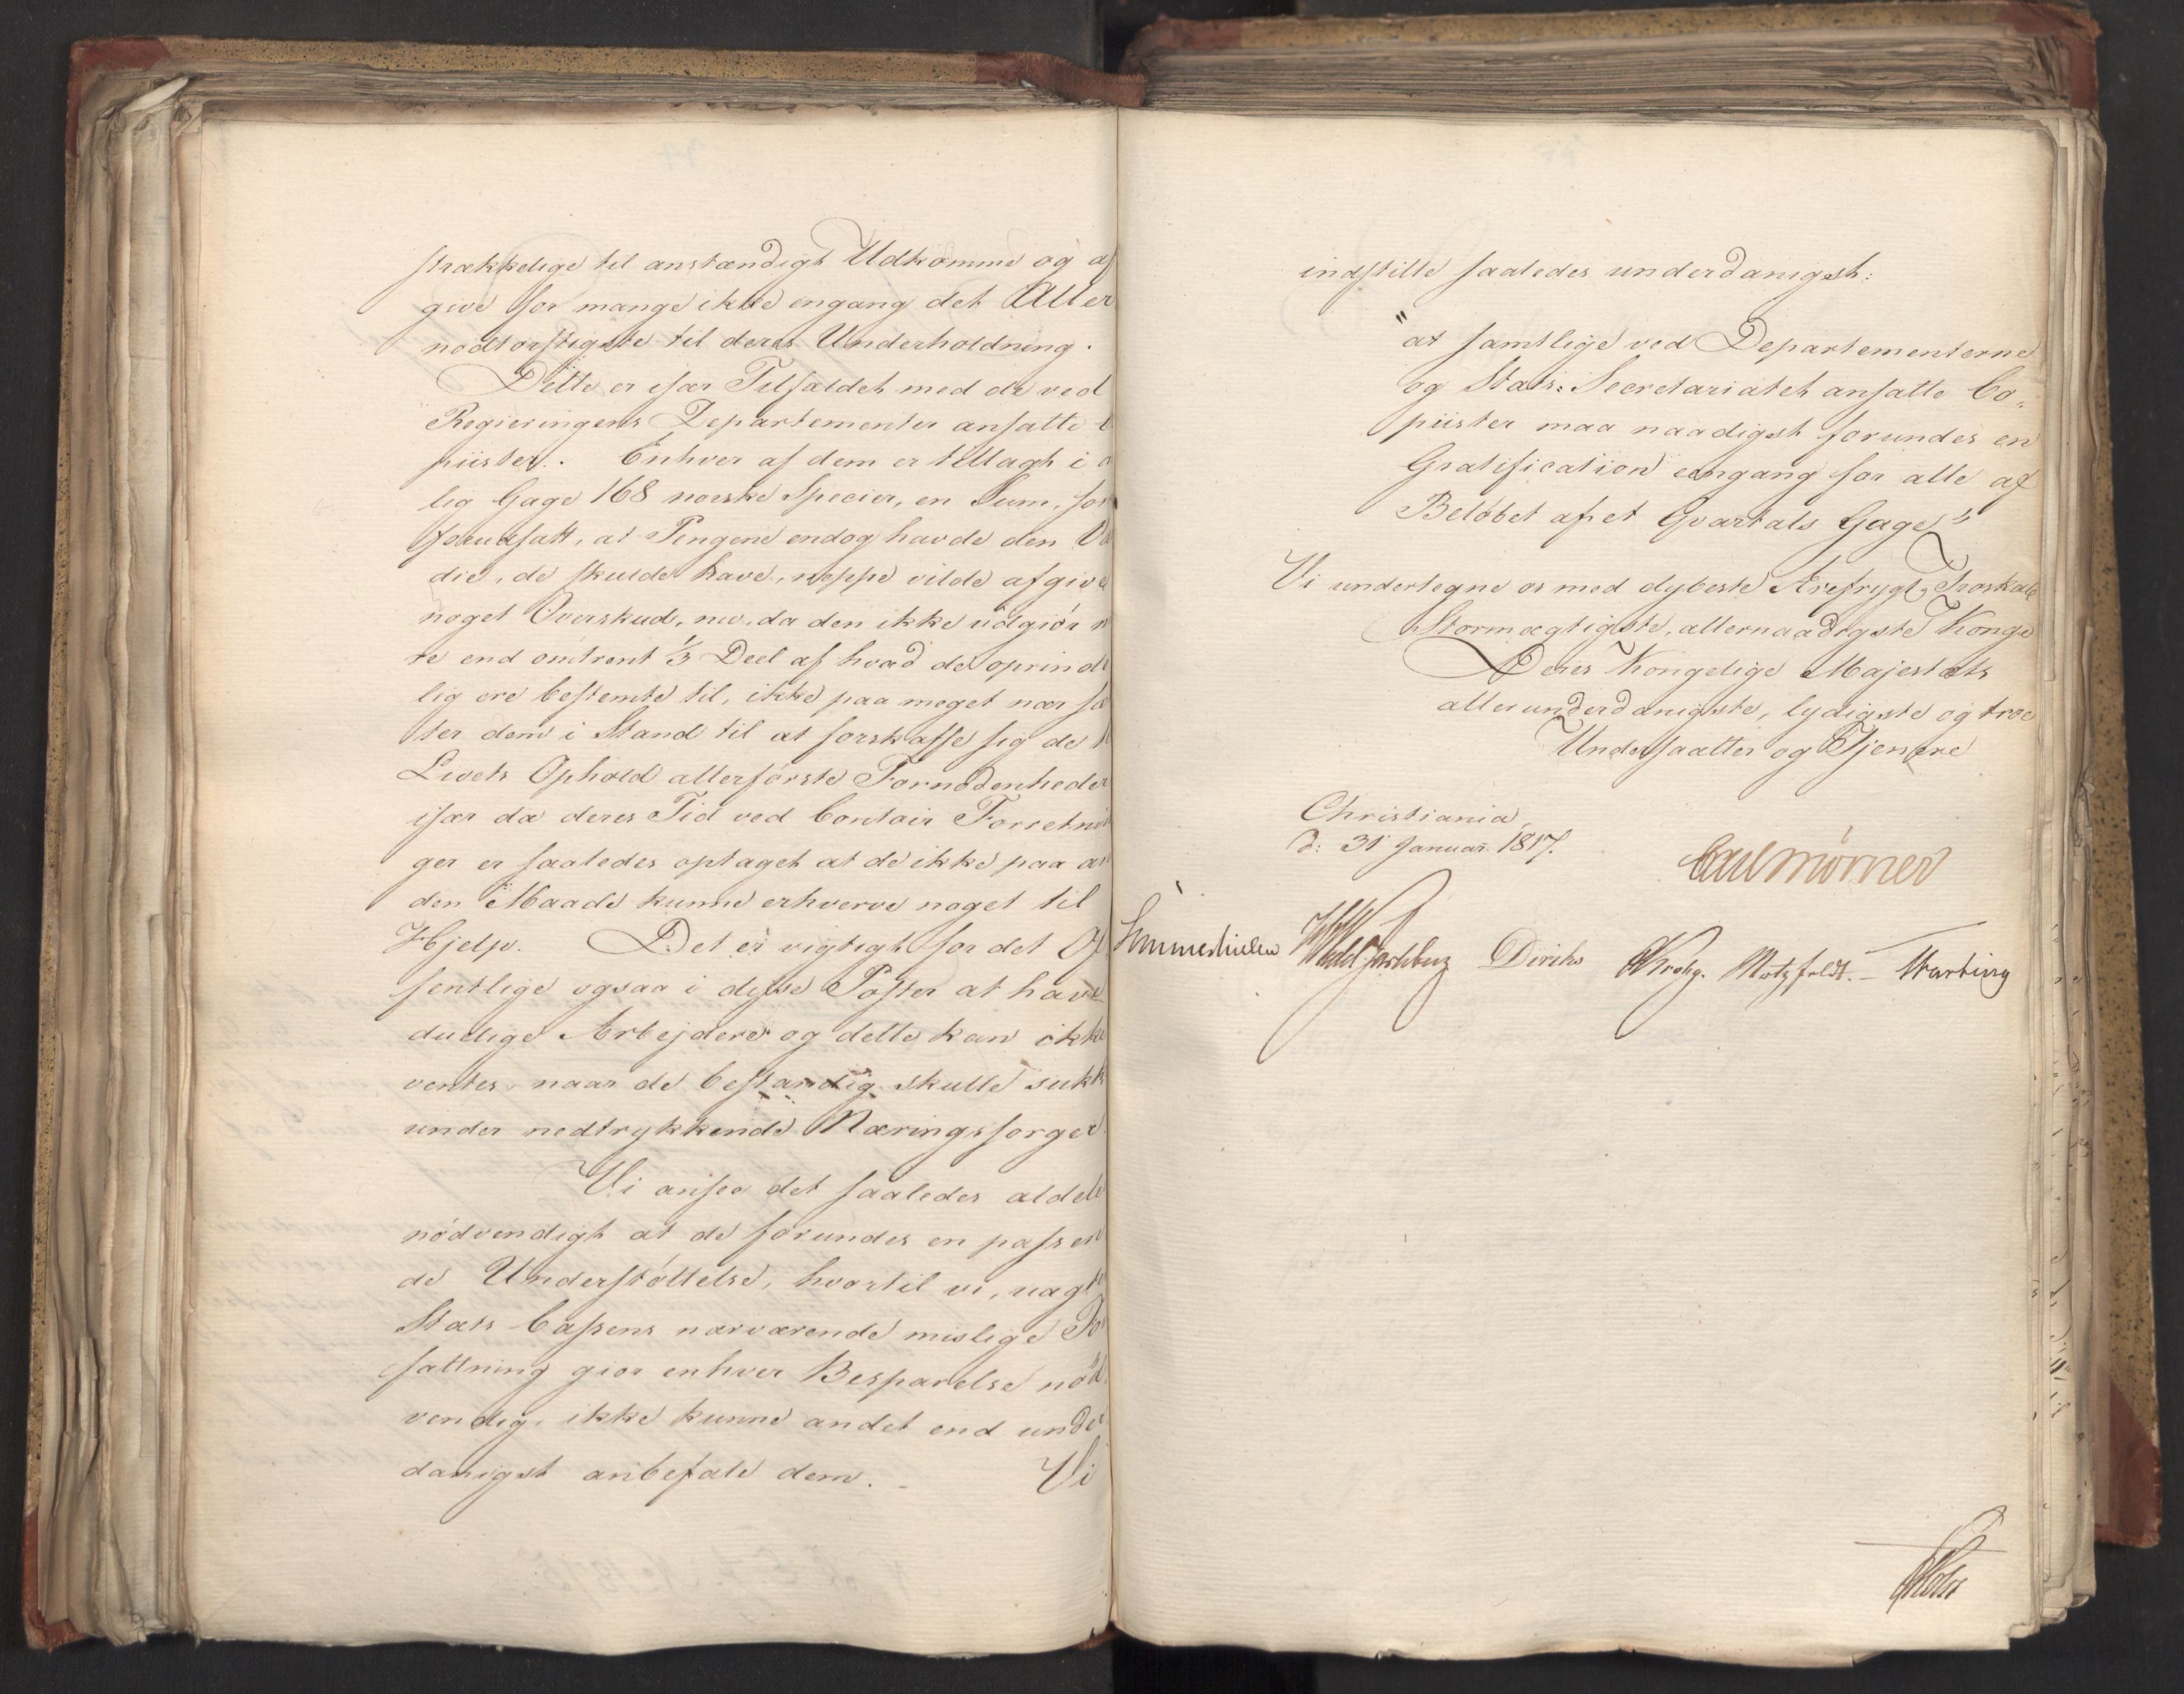 strækkelige til anstændigt Udkomme og af
give for mange ikke engang det Aller
nødtørftigste til deres Underholdning.
Dette er især Tilfældet med de ved
Regieringens Departementer ansatte
piister. Enhver af dem er tillagt i
lig Gage 168 norske Specier, en Sum, som
forudsatt, at Pengene endog havde den Væ
die, de skulde have, neppe vilde afgive
noget Overskud, nu, da den ikke udgiør
re end omtrent 1/3 Deel af hvad de oprinde
lig ere bestemte til, ikke paa meget nær sæ
ter dem i Stand til at forskaffe sig de
Livets Ophold allerførste Fornødenheder
især da deres Tid ved Contoir Forretnin
ger er saaledes optaget at de ikke paa an
den Maade kunne erhverve noget til
Hjelp. Det er vigtigt for det Of
fentlige ogsaa i disse Poster at have
duelige Arbejdere og dette kan ikke
ventes, naar de bestandig skulle sukke
under nedtrykkende Næringssorger.
Vi ansee det saaledes aldele
nødvendigt at de forundes en passen
de Understøttelse, hvortil vi, uagt
Stats Cassens nærværende mislige For
fattning giør enhver Besparelse nød.
vendig, ikke kunne andet end under
danigst anbefale dem. Vi
indstille saaledes underdanigst:
"at samtlige ved Departementerne
og Stats-Secretariatet ansatte Co-
piister maa naadigst forundes en
Gratification eengang for alle af
Beløbet af et Qvartals Gage"
Vi undertegne os med dybeste Ærefrygt, Troskab
Stormægtigste, allernaadigste Konge
Deres Kongelige Majestæts
allerunderdanigste, lydigste og troe
Undersaatter og Tjenere
Christiania,
d: 31 Januar 1817.
Carl Mörner
Sommerhielm Wedel Jarlsberg Diriks Krohg. Motzfeldt.